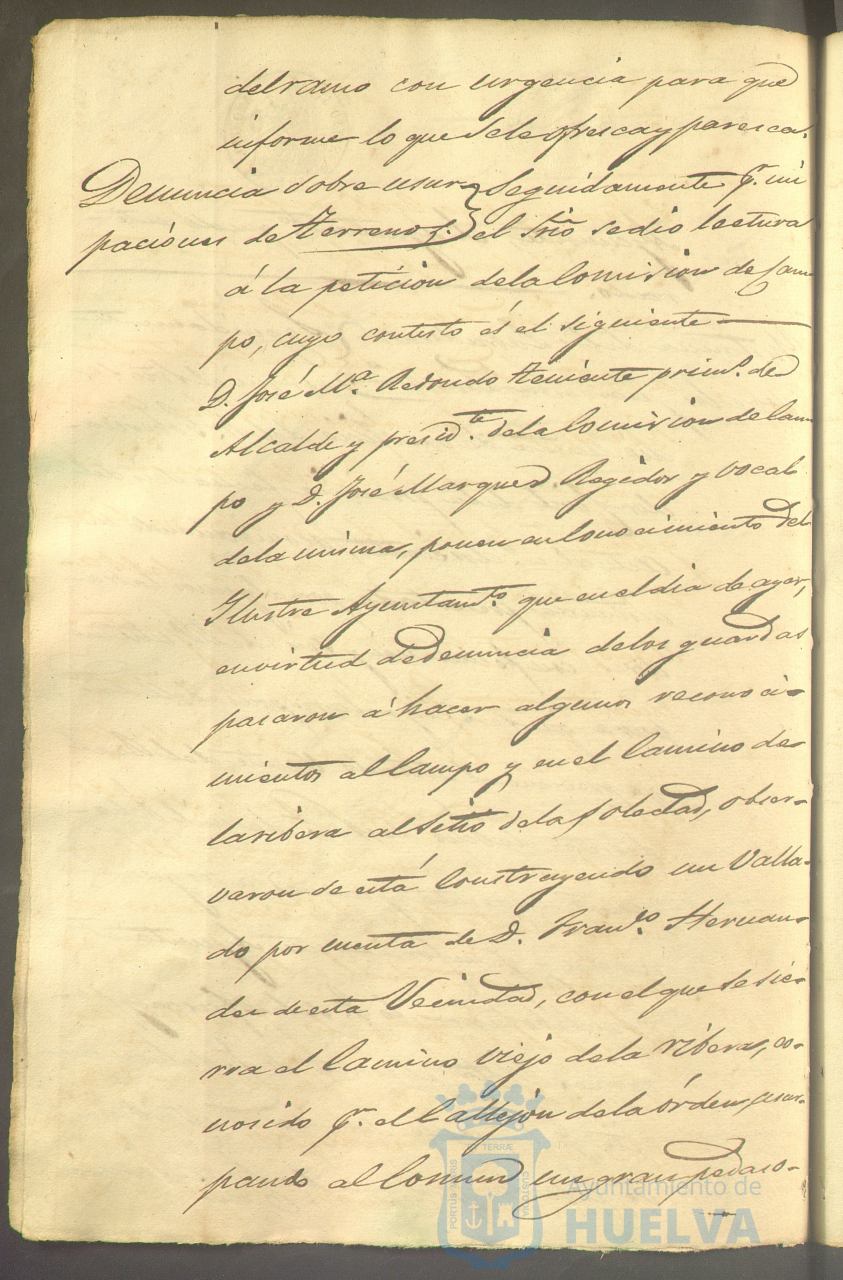 del ramo con urgencia para que
informe lo que se le ofresca y paresca.
Denuncia sobre usur-
paciones de terrenos.
Seguidamente p.r mi
el Srio se dio lectura
á la peticion de la Comision de Cam-
po, cuyo contesto és el siguiente
D. José M.a Redondo Teniente prim.o de
Alcalde y presid.te de la Comision de Cam-
po y D. José Marques Regidor y vocal
de la misma, ponen en conocimiento del
Ilustre Ayuntam.to que en el dia de ayer,
en virtud de denuncia de los guardas
pasaron á hacer algunos reconoci-
mientos al Campo y en el Camino de
la ribera al sitio de la Soledad, obser-
varon se está construyendo un Valla-
do por cuenta de D. Fran.co Hernan-
dez de esta Vecindad, con el que se cier-
ra el Camino viejo de la ribera, co-
nosido p.r el Callejón de la órden, usur-
pando al Comun un gran pedaso
PORTUS MARIS
ET TERRÆ
CUSTODIA
Ayuntamiento de
HUELVA